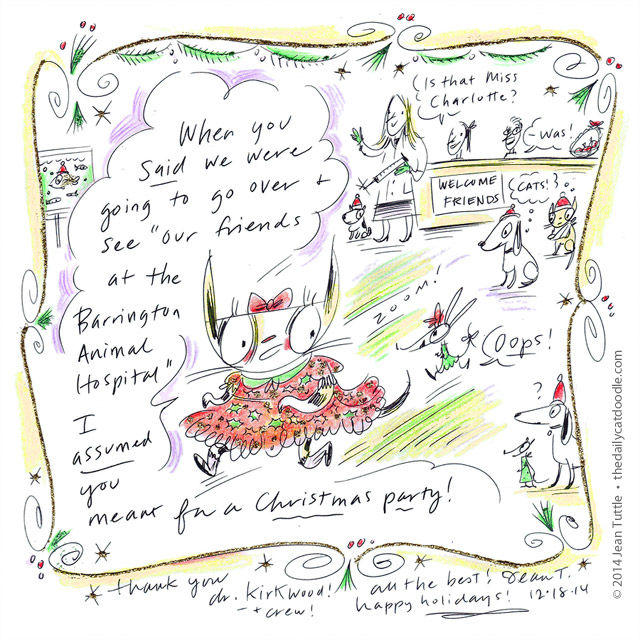 When you
said we were
going to go over +
see "our friends
at the
Barrington
Animal
Hospital"
I
assumed
you
meant for a Christmas party!
Is that Miss
Charlotte?
was!
WELCOME
FRIENDS
CATS!
ZOOM!
Oops!
?
thank you
dr. Kirkwood!
+ crew!
all the best! Jean T.
happy holidays! 12.18.14
© 2014 Jean Tuttle • thedailycatdoodle.com